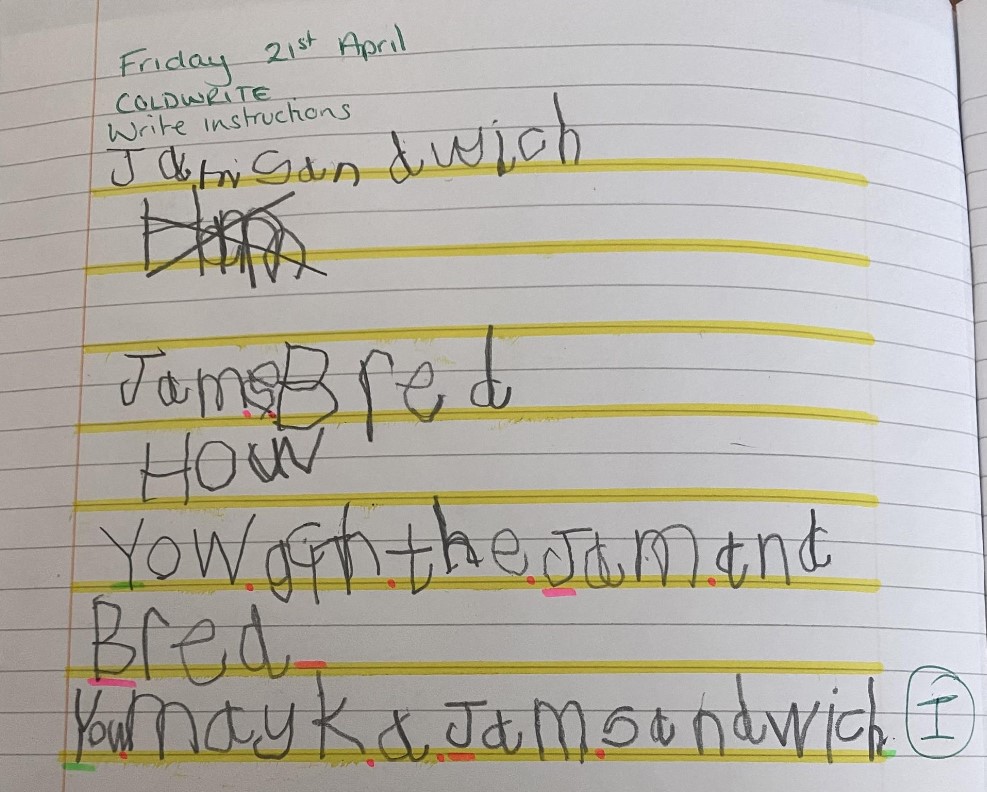 Friday 21st April
COLDWRITE
Write instructions
Jam Sandwich
Jams Bred
How
Yow the Jam and
Bred
You mayk a Jam sandwich. I